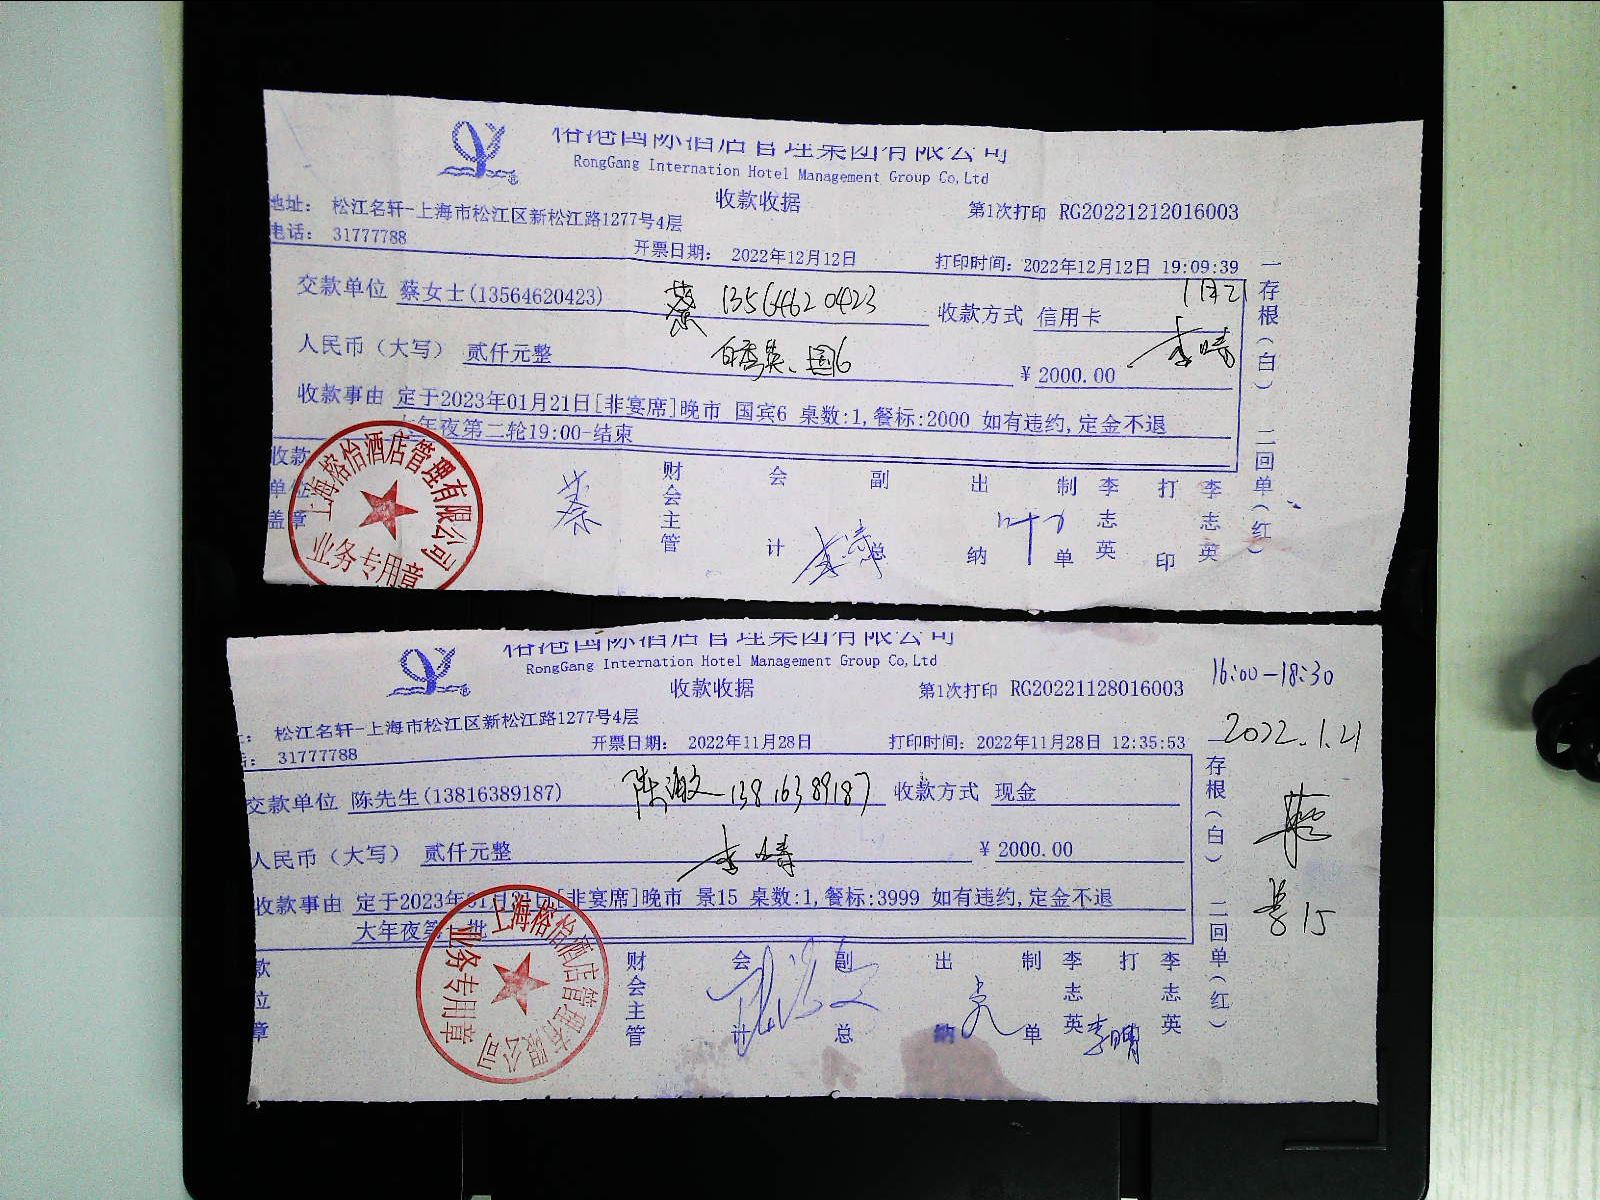 国际酒店管理集团有限公司
RongGang International Hotel Management Group Co,Ltd
收款收据
第1次打印 RG20221212016003
地址: 松江名轩-上海市松江区新松江路1277号4层
电话: 31777788
开票日期: 2022年12月12日
打印时间: 2022年12月12日 19:09:39
交款单位 蔡女士(13564620423)
蔡 13564620423
收款方式 信用卡
1月21
人民币(大写) 贰仟元整
国6
¥2000.00
收款事由 定于2023年01月21日[非宴席]晚市 国宾6 桌数:1,餐标:2000 如有违约,定金不退
大年夜第二轮19:00-结束
收款单位盖章
上海榕怡酒店管理有限公司
业务专用章
蔡
财会主管
会计
副总
出纳
制单
李志英
打印
李志英
一存根(白) 二回单(红)
国际酒店管理集团有限公司
RongGang International Hotel Management Group Co,Ltd
收款收据
第1次打印 RG20221128016003
16:00-18:30
: 松江名轩-上海市松江区新松江路1277号4层
: 31777788
开票日期: 2022年11月28日
打印时间: 2022年11月28日 12:35:53
2022.1.21
交款单位 陈先生(13816389187)
13816389187
收款方式 现金
人民币(大写) 贰仟元整
¥2000.00
收款事由 定于2023年01月21日[非宴席]晚市 景15 桌数:1,餐标:3999 如有违约,定金不退
大年夜第一批
景15
款位章
上海榕怡酒店管理有限公司
业务专用章
财会主管
会计
副总
出纳
制单
李志英
打
李志英
一存根(白) 二回单(红)